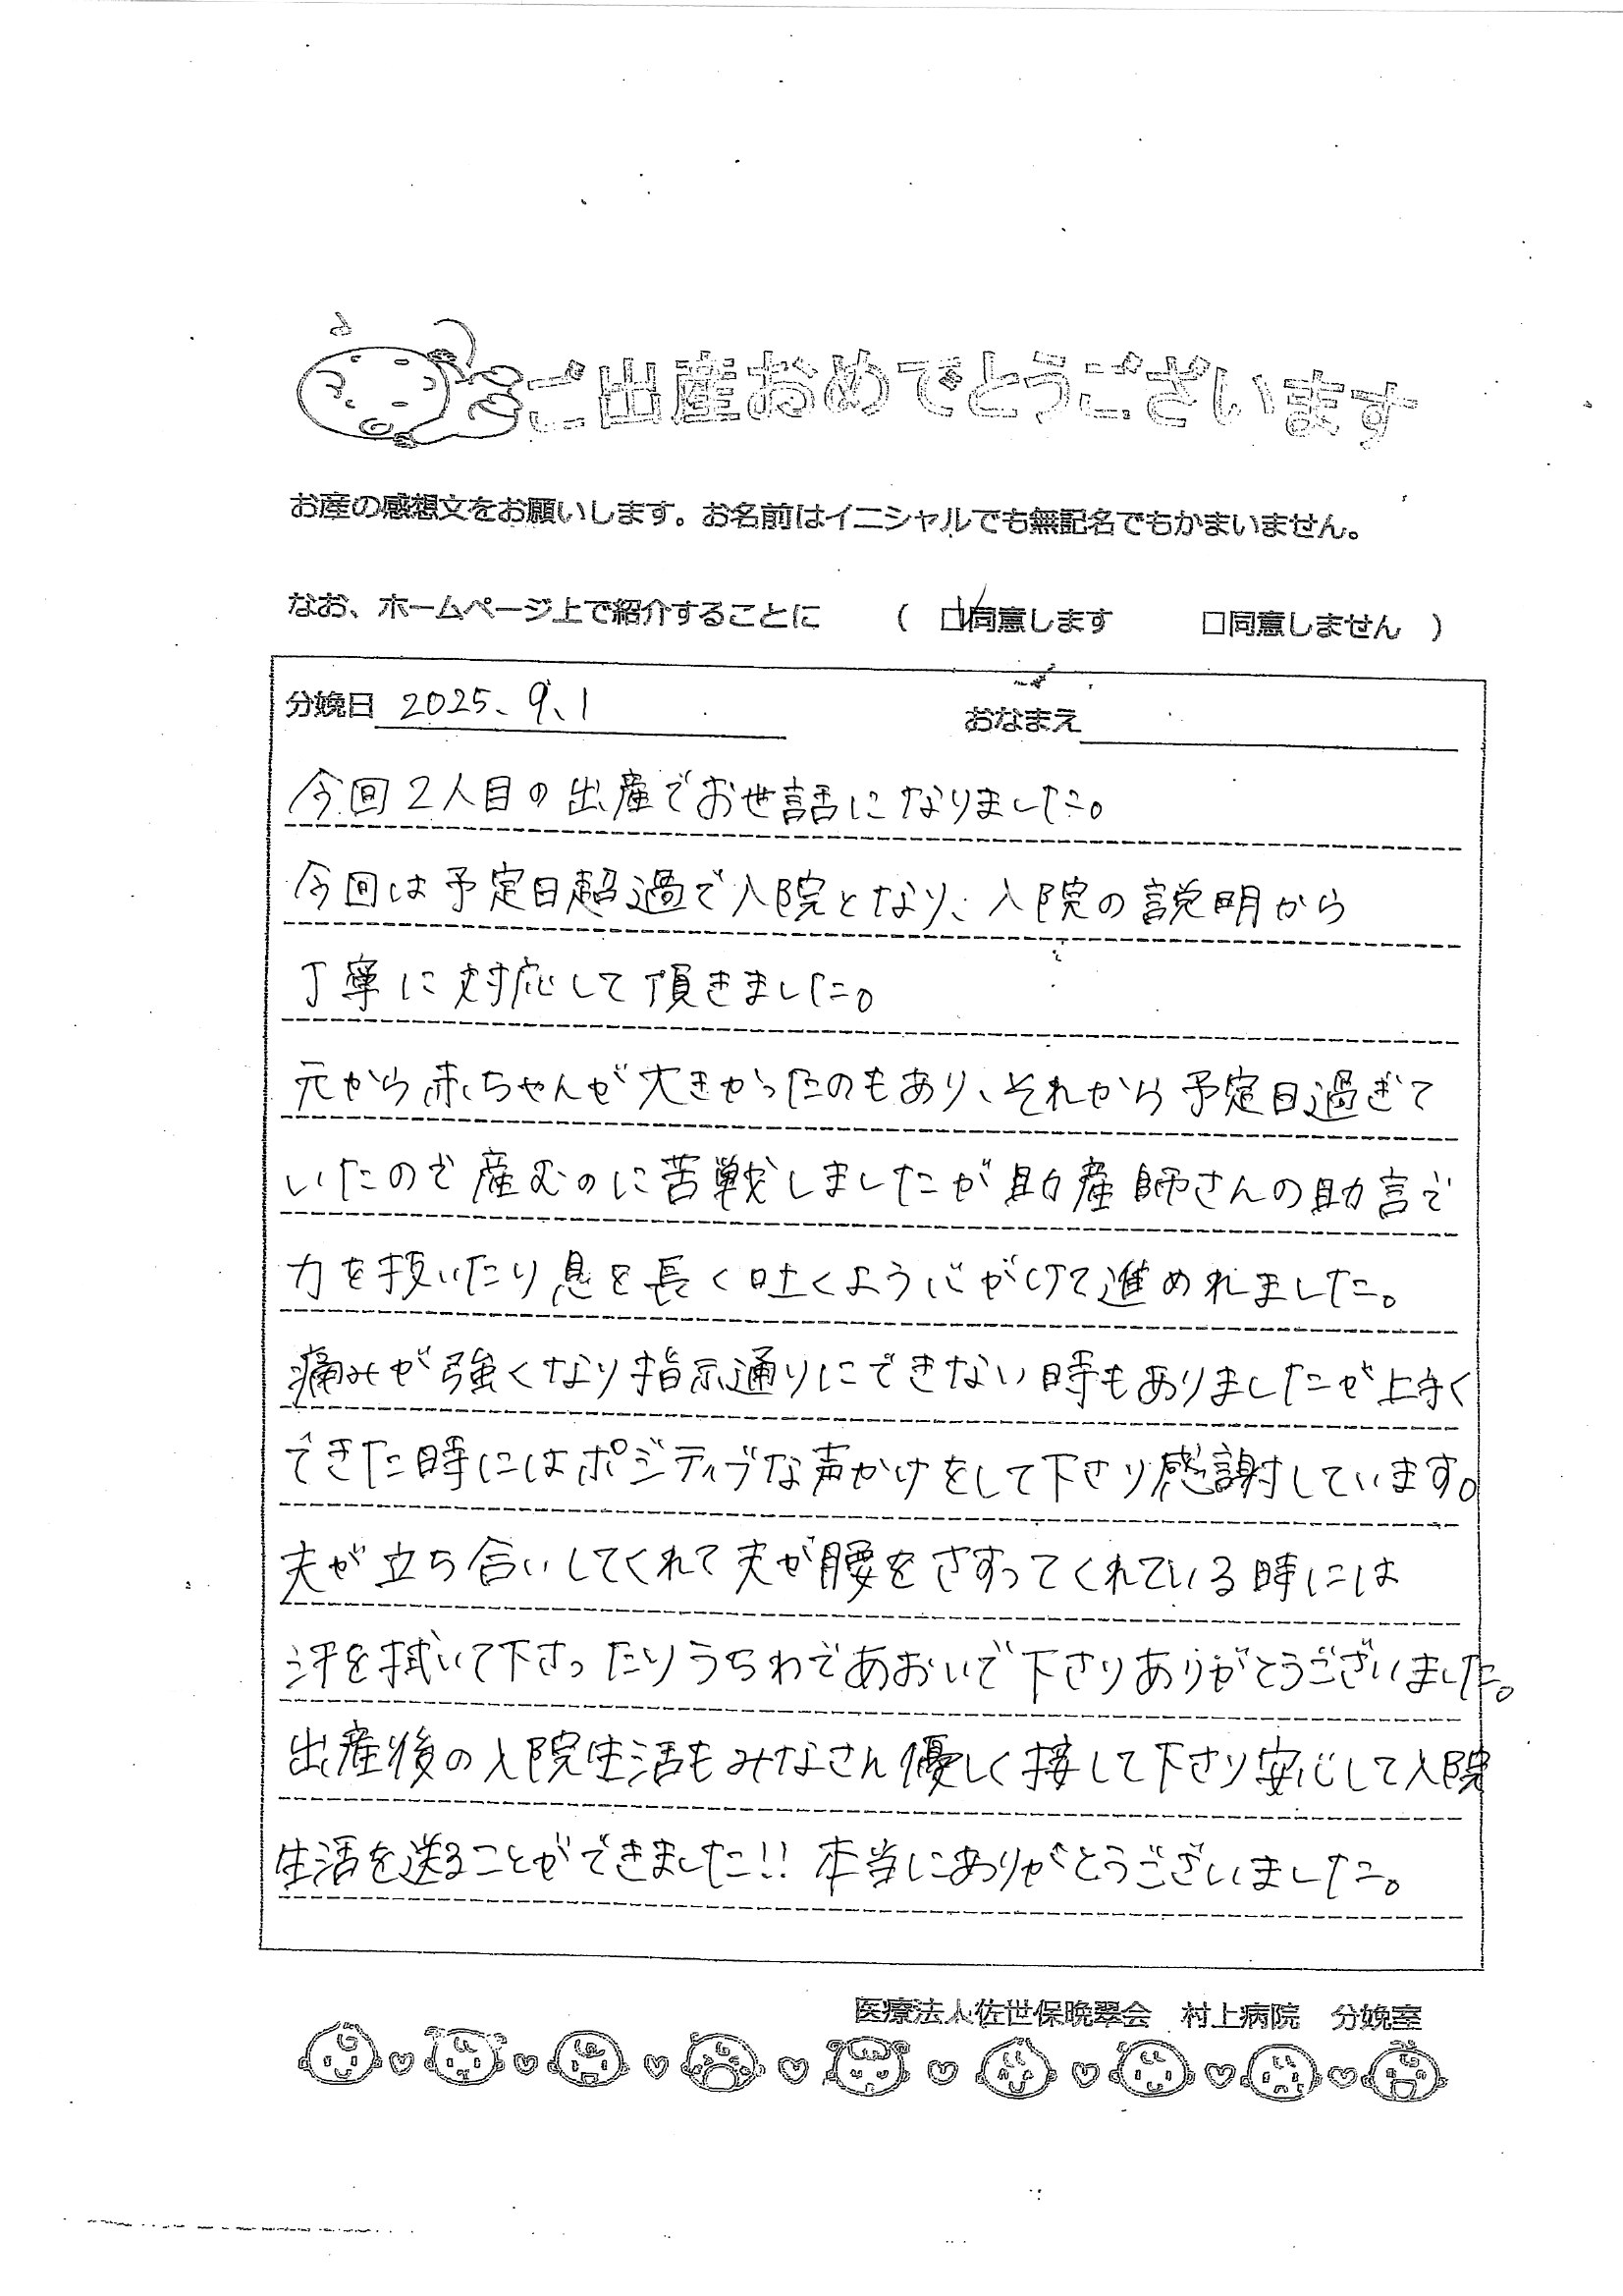 ご出産おめでとうございます
お産の感想文をお願いします。お名前はイニシャルでも無記名でもかまいません。
なお、ホームページ上で紹介することに （ ☑同意します □同意しません ）
分娩日 2025、9、1 おなまえ
今回2人目の出産でお世話になりました。
今回は予定日超過で入院となり、入院の説明から
丁寧に対応して頂きました。
元から赤ちゃんが大きかったのもあり、それから予定日過ぎて
いたので産むのに苦戦しましたが助産師さんの助言で
力を抜いたり息を長く吐くよう心がけて進めれました。
痛みが強くなり指示通りにできない時もありましたが上手く
できた時にはポジティブな声かけをして下さり感謝しています。
夫が立ち合いしてくれて夫が腰をさすってくれている時には
汗を拭いて下さったりうちわであおいで下さりありがとうございました。
出産後の入院生活もみなさん優しく接して下さり安心して入院
生活を送ることができました!! 本当にありがとうございました。
医療法人佐世保晩翠会 村上病院 分娩室